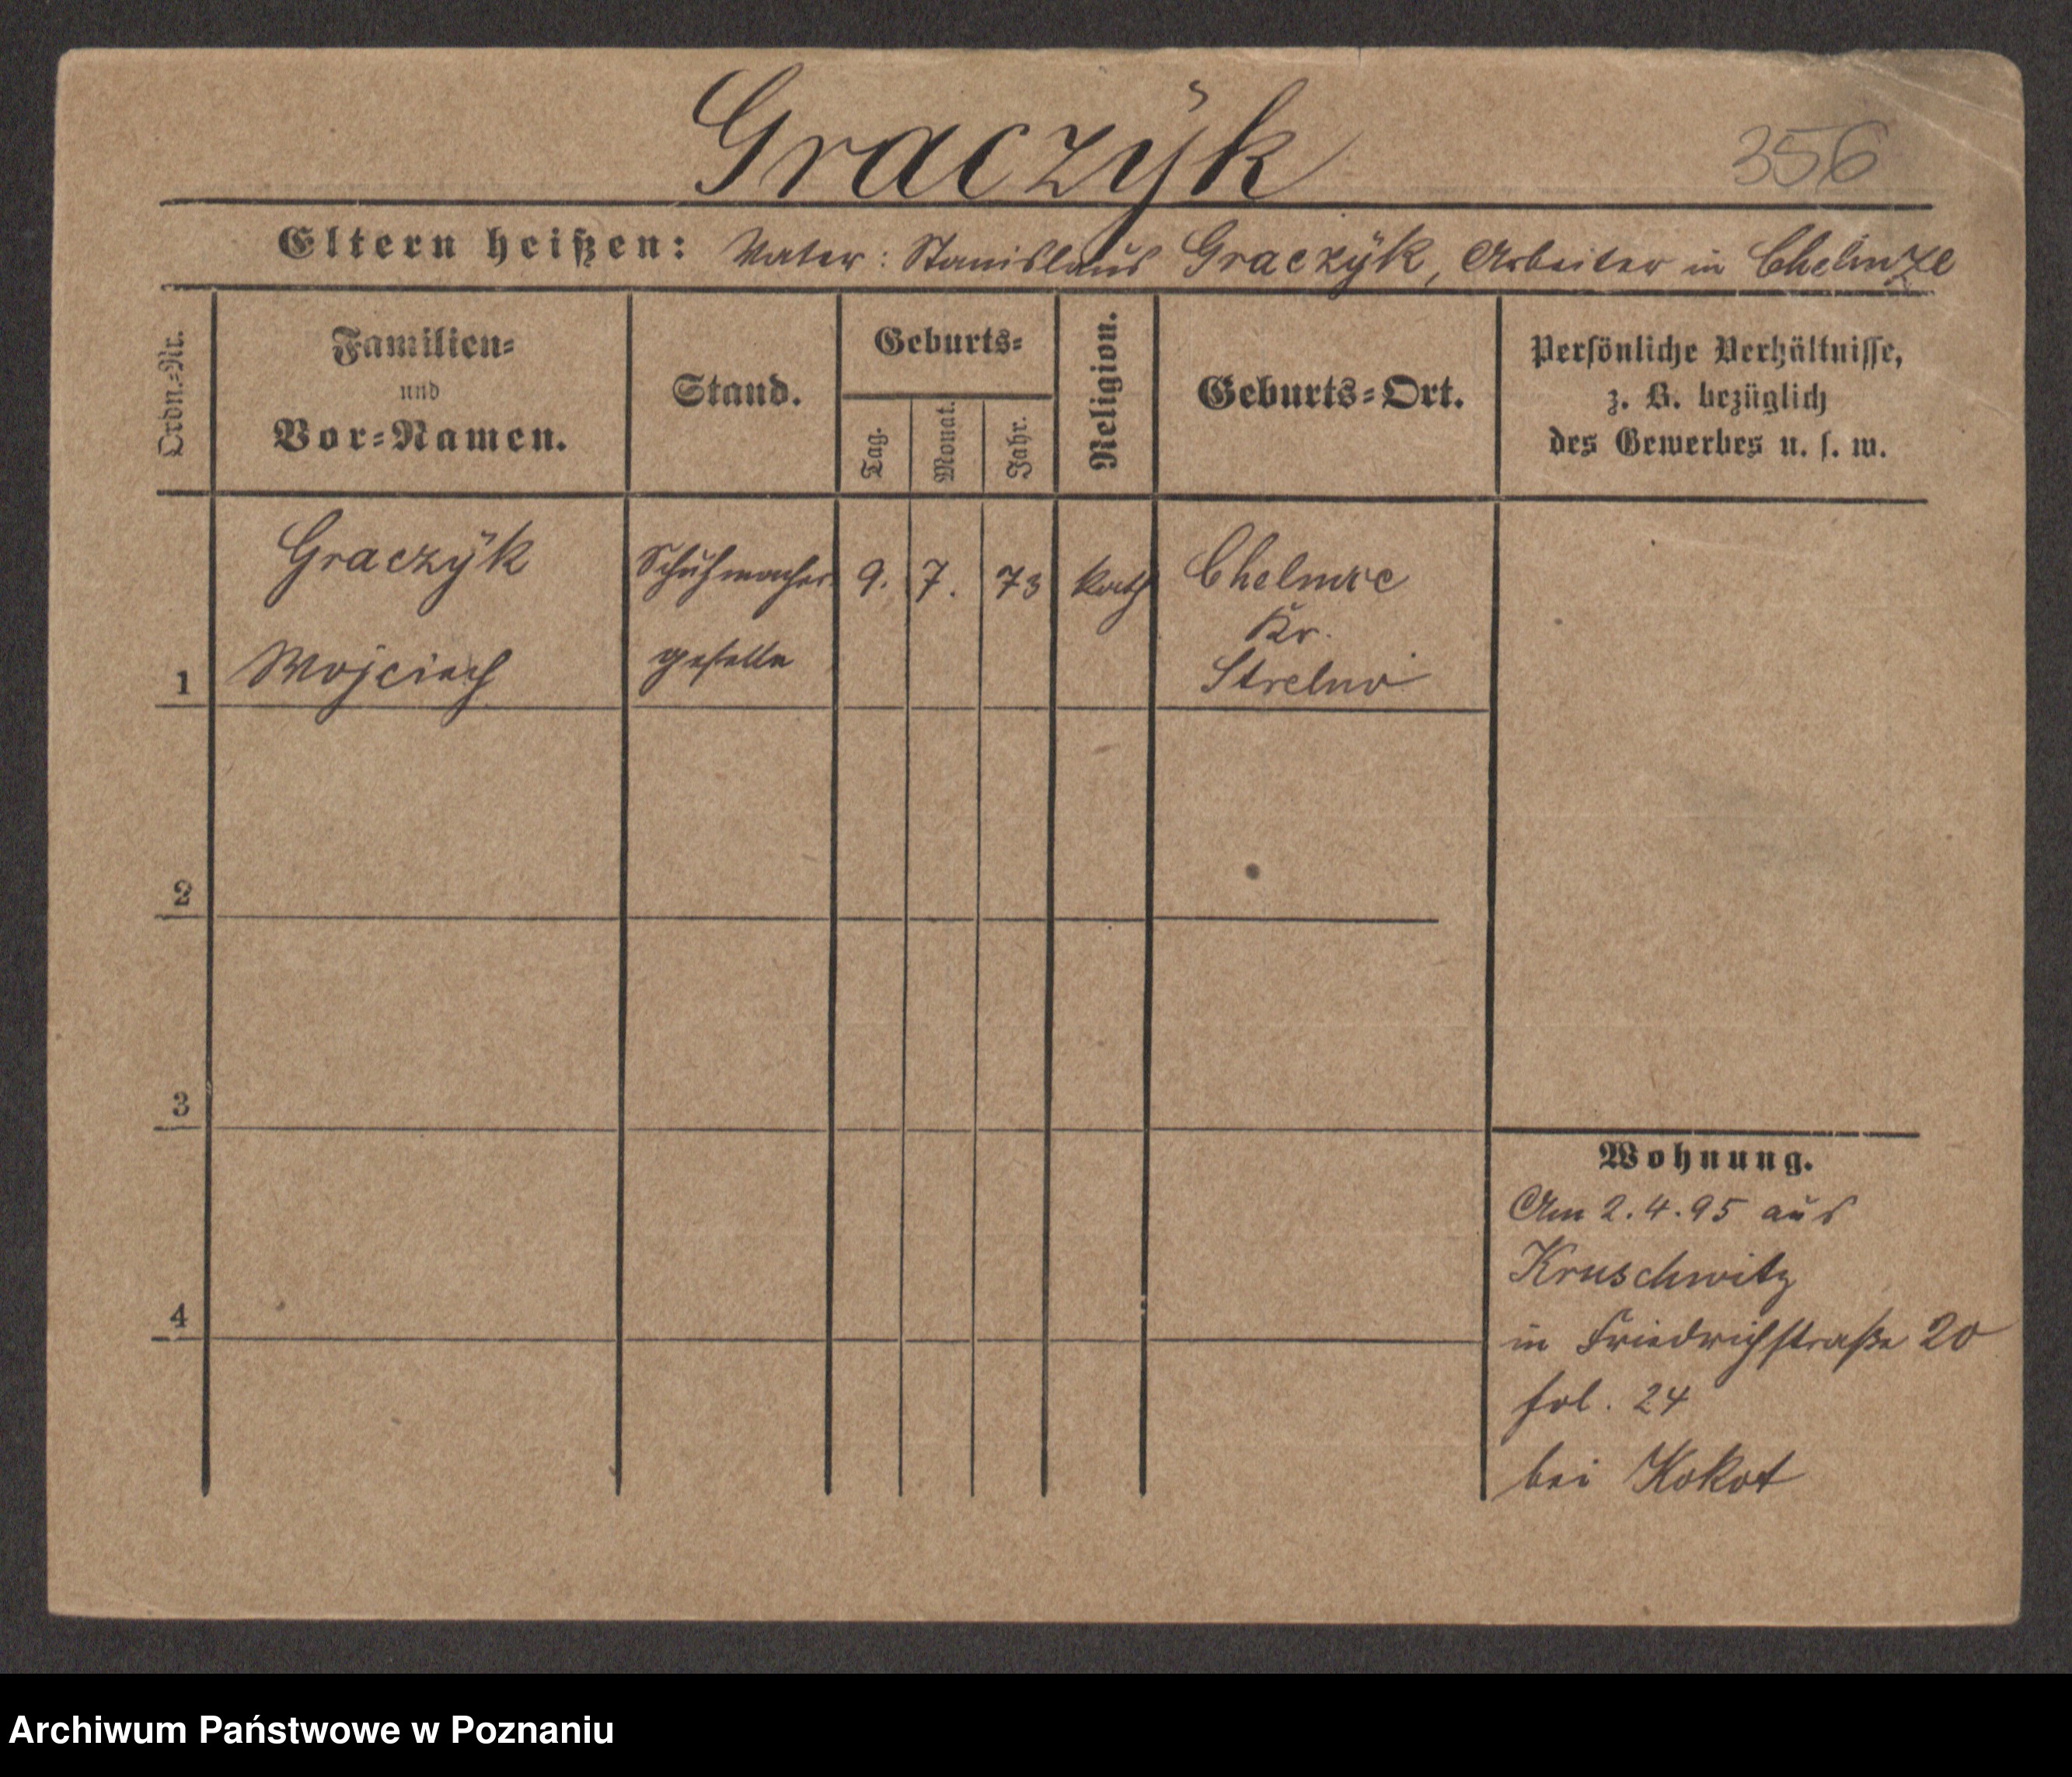 Graczÿk
356
Eltern heißen: Vater: Stanislaus Graczÿk, Arbeiter in Chelmze
Ordn.=Nr.
Familien=
und
Vor=Namen.
Stand.
Geburts=
Tag.
Monat.
Jahr.
Religion.
Geburts=Ort.
Persönliche Verhältnisse,
z. B. bezüglich
des Gewerbes u. s. w.
Graczÿk Schuhmacher 9. 7. 73 kath Chelmce
Kr.
1 Wojciech geselle Strelno
2
3
4
Wohnung.
Am 2.4.95 aus
Kruschwitz
in Friedrichstraße 20
fol. 24
bei Kokot
Archiwum Państwowe w Poznaniu